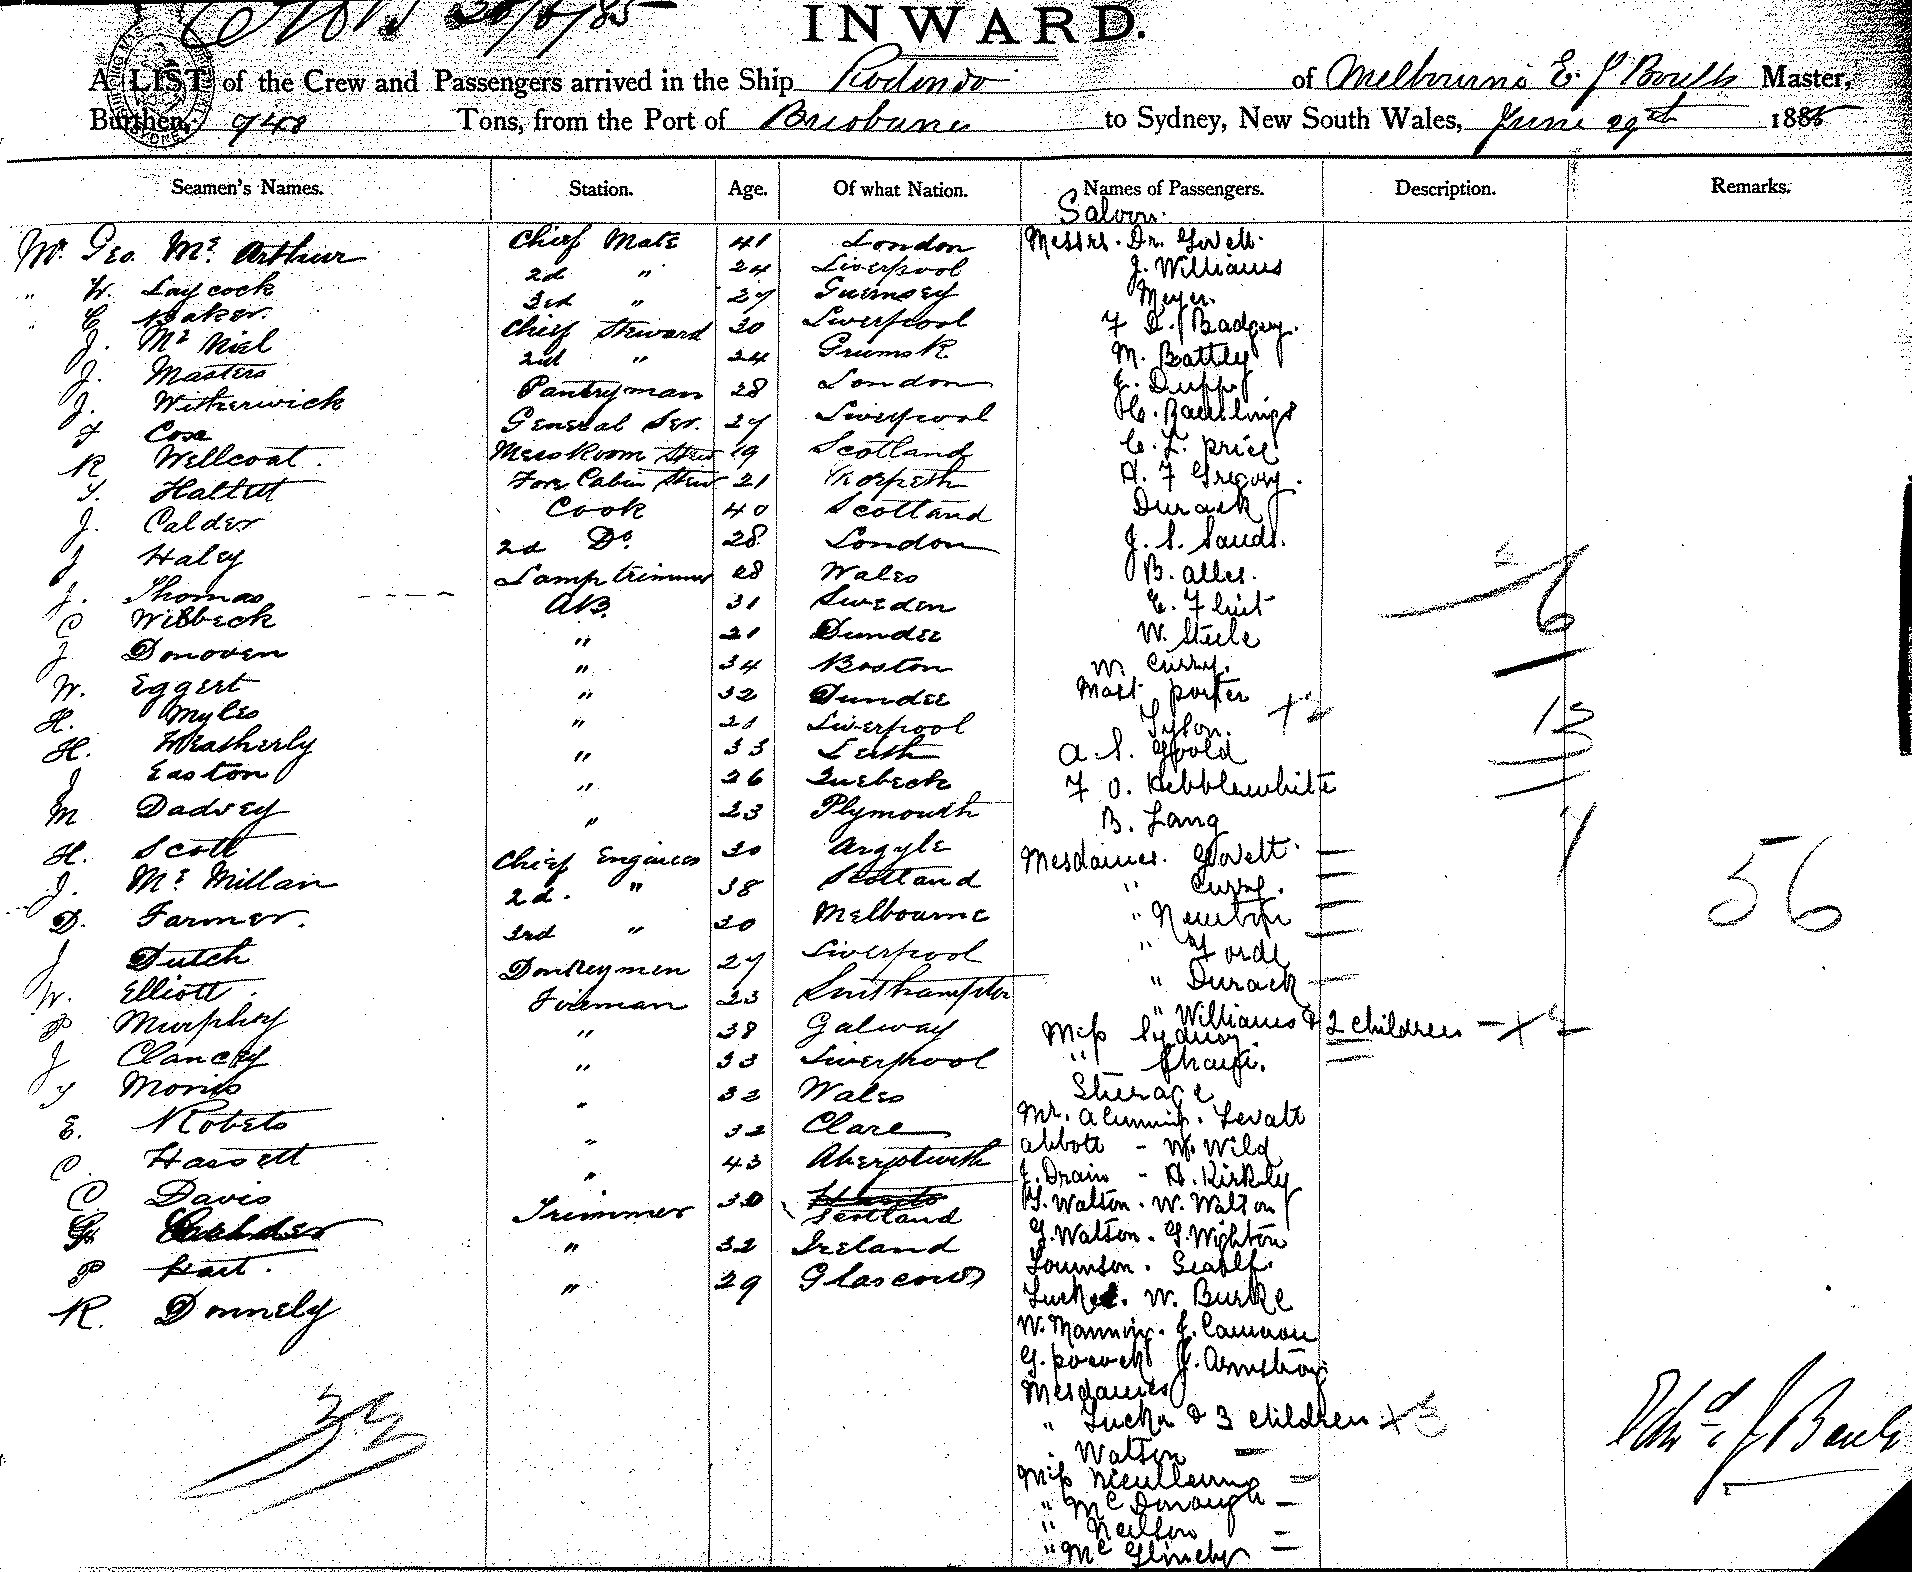 20/6/85
INWARD.
A LIST of the Crew and Passengers arrived in the Ship Rodondo of Melbourne E. J Boult Master,
Burthen, 948 Tons, from the Port of Brisbane to Sydney, New South Wales, June 29th 1885
Seamen's Names. Station. Age. Of what Nation. Names of Passengers. Description. Remarks.
Saloon.
Mr. Geo. Mc Arthur Chief Mate 41 London Messrs. Dr. Govett
" W. Laycock 2d " 24 Liverpool J. Williams
" C Baker. 3rd " 27 Guernsey Meyer.
J. Mc Niel Chief Steward 30 Liverpool F D. Badgery.
J. Masters 2nd " 24 M. Battley
J. Witherwick Pantryman 28 London J. Dupp
F Cox General Ser. 27 Liverpool H. Rawlings
R Wellcoat. Messroom Stew 19 Scotland C. L. Price
T. Hallett Fore Cabin Stew 21 Morpeth A. F Gregory.
J. Calder Cook 40 Scotland Durack
J Haley 2d Do. 28 London J. S. Sands.
J. Thomas Lamptrimmer 28 Wales B. Alles.
C Wibbeck AB. 31 Sweden E. Flint
J Donoven " 21 Dundee W. Steele
W. Eggert " 34 Boston W Curry.
H. Myles " 32 Dundee Mast. Porter
H. Weatherly " 21 Liverpool Tyson.
J Easton " 33 Leith A. S. Gould
M Dadsey " 26 Quebeck F O. Hebblewhite
H. Scott " 23 Plymouth B. Lang
J. Mc Millan Chief Engineer 30 Argyle Mesdames. Govett.
D. Farmer. 2d. " 38 Scotland " Curry.
J Dutch 3rd " 30 Melbourne " Newton
W. Elliott. Donkeymen 27 Liverpool " Forde
P Murphy Fireman 23 Southampton " Durack
J Clancey " 38 Galway " Williams & 2 children - x 2
T Morris " 33 Liverpool Miss Sydney.
E. Robets " 32 Wales " Sharpe.
C. Hassett " 32 Clare Steerage
C Davis " 43 Aberystwith Mr. A Cumming. Levatt
G. Calder Trimmer 30 Scotland Abbott - W. Wild
P Hart. " 32 Ireland J. Drain - H. Kirkley
R. Donnely " 29 Glascow G. Walton. W. Walton
G. Walton. G. Wighton
Tucker. W. Burke
W. Manning. J. Cameron
G. Pocock J. Armstrong
Mesdames
" Tucker & 3 children x 3
" Walton
Miss
" Mc Donough
" Neilson
" Mc Glinchy
6
13
7
56
33
Edwd. J Boult